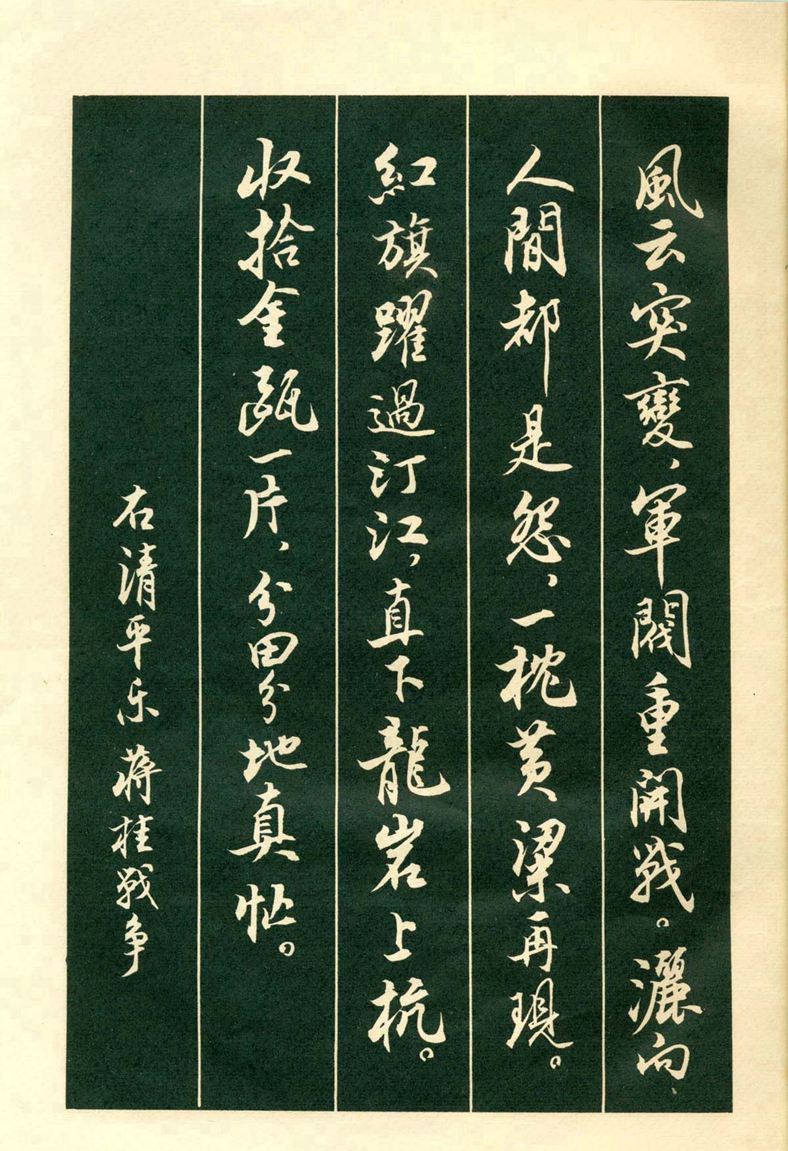 風云突變、軍閥重開戰。灑向、
人間都是怨、一枕黃粱再現。
紅旗躍過汀江，直下龍岩上杭。
收拾金甌一片、分田分地真忙。
右清平乐 蔣桂戰争